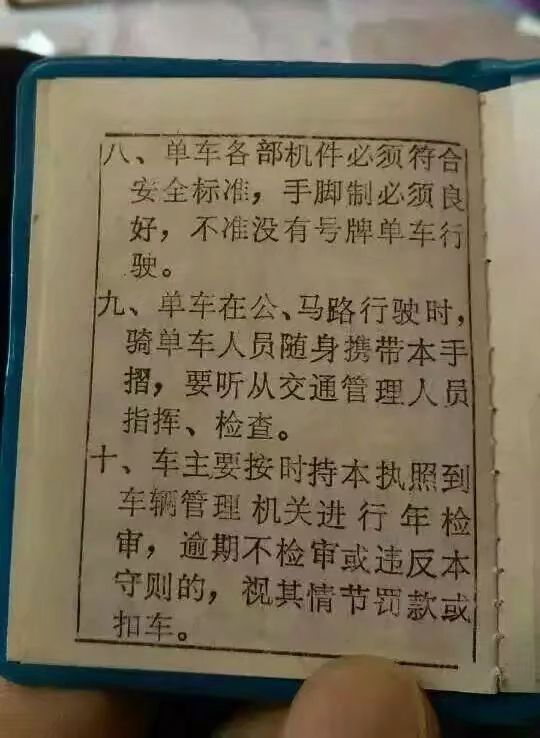 八、单车各部机件必须符合
安全标准，手脚制必须良
好，不准没有号牌单车行
驶。
九、单车在公、马路行驶时，
骑单车人员随身携带本手
摺，要听从交通管理人员
指挥、检查。
十、车主要按时持本执照到
车辆管理机关进行年检
审，逾期不检审或违反本
守则的，视其情节罚款或
扣车。